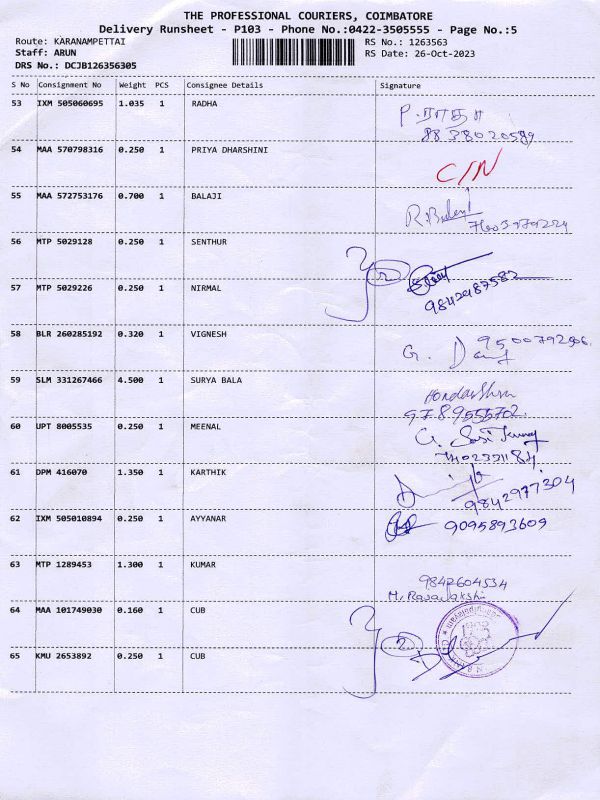 THE PROFESSIONAL COURIERS, COIMBATORE
Delivery Runsheet - P103 - Phone No.:0422-3505555 - Page No.:5
Route: KARANAMPETTAI RS No.: 1263563
Staff: ARUN RS Date: 26-Oct-2023
DRS No.: DCJB126356305
S No Consignment No Weight PCS Consignee Details Signature
53 IXM 505060695 1.035 1 RADHA P. ராதா
8838020589
54 MAA 570798316 0.250 1 PRIYA DHARSHINI C/N
55 MAA 572753176 0.700 1 BALAJI
56 MTP 5029128 0.250 1 SENTHUR 2
57 MTP 5029226 0.250 1 NIRMAL 9842487582
58 BLR 260285192 0.320 1 VIGNESH G.
59 SLM 331267466 4.500 1 SURYA BALA
9789555702
60 UPT 8005535 0.250 1 MEENAL G.
61 DPM 416070 1.350 1 KARTHIK 9842977304
62 IXM 505010894 0.250 1 AYYANAR 9095893609
63 MTP 1289453 1.300 1 KUMAR 9842604534
64 MAA 101749030 0.160 1 CUB 2
65 KMU 2653892 0.250 1 CUB